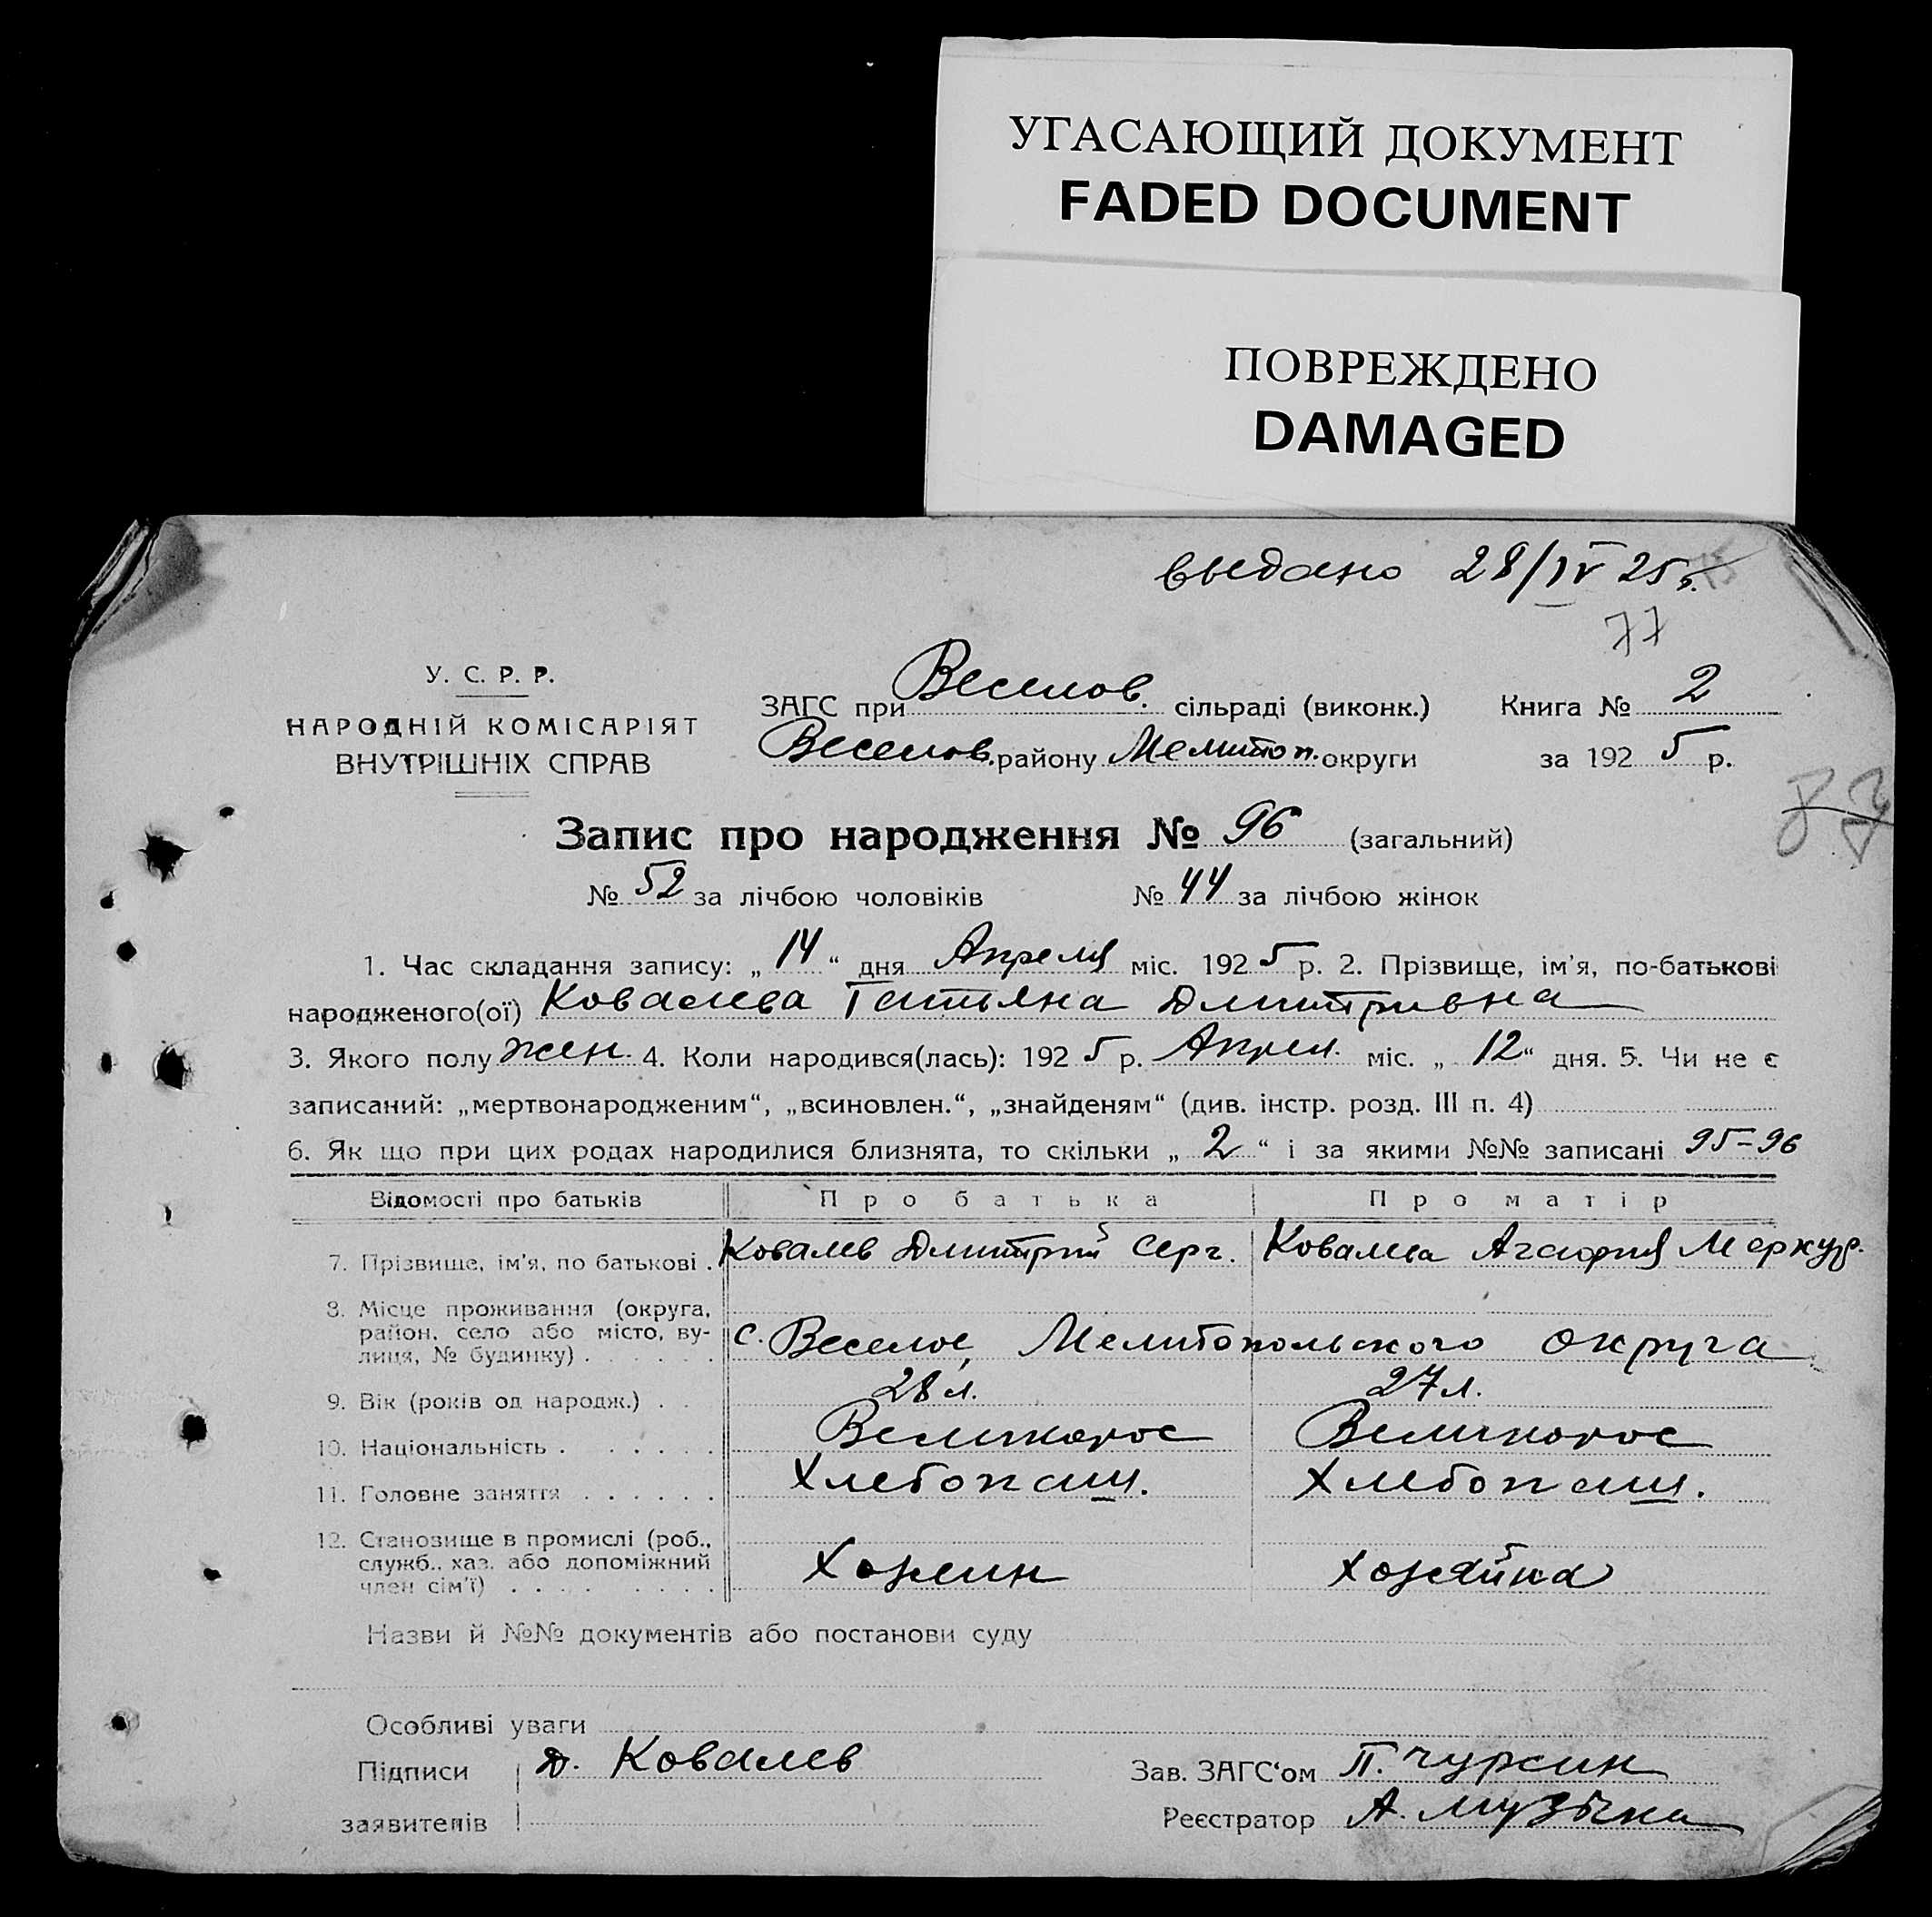 УГАСАЮЩИЙ ДОКУМЕНТ
FADED DOCUMENT
ПОВРЕЖДЕНО
DAMAGED
выдано 28/IV 25 г.
77
У. С. Р. Р.
НАРОДНІЙ КОМІСАРІЯТ
ВНУТРІШНІХ СПРАВ
ЗАГС при Веселов. сільраді (виконк.) Книга № 2
Веселов. району Мелитоп. округи за 1925 р.
Запис про народження № 96 (загальний)
№ 52 за лічбою чоловіків № 44 за лічбою жінок
1. Час складання запису: „14“ дня Апреля міс. 1925 р. 2. Прізвище, ім'я, по-батькові
народженого(ої) Ковалева Татьяна Дмитривна
3. Якого полу жен. 4. Коли народився(лась): 1925 р. Апрел. міс. „12“ дня. 5. Чи не є
записаний: „мертвонародженим“, „всиновлен.“, „знайденям“ (див. інстр. розд. III п. 4)
6. Як що при цих родах народилися близнята, то скільки „2“ і за якими №№ записані 95-96
Відомості про батьків Про батька Про матір
7. Прізвище, ім'я, по батькові . Ковалев Дмитрий Серг. Ковалева Агафия Меркур.
8. Місце проживання (округа,
район, село або місто, ву-
лиця, № будинку) . . . . . . с. Веселое, Мелитопольского округа
9. Вік (років од народж.) . . 28 л. 27 л.
10. Національність . . . . . . Великорос Великорос
11. Головне заняття . . . . . . Хлебопаш. Хлебопаш.
12. Становище в промислі (роб.,
служб., хаз. або допоміжний
член сім'ї) . . . . . . . . Хозяин хозяйка
Назви й №№ документів або постанови суду
Особливі уваги
Підписи Д. Ковалев Зав. ЗАГС‘ом П. Чурсин
заявителів Реєстратор А. Музычка